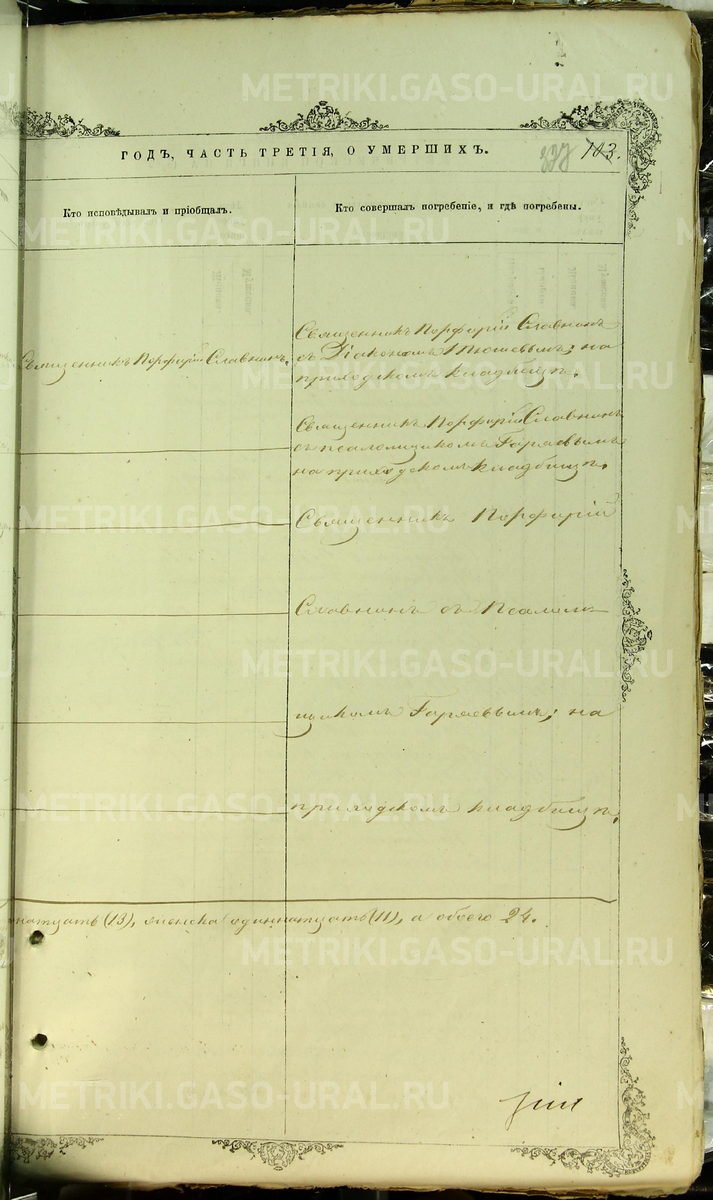 METRIKI.GASO-URAL.RU
ГОДЪ, ЧАСТЬ ТРЕТІЯ, О УМЕРШИХЪ.
103.
Кто исповѣдывалъ и пріобщалъ.
Кто совершалъ погребеніе, и гдѣ погребены.
Священникъ Порфирій Славнинъ.
Священникъ Порфирій Славнинъ
съ на
приходскомъ кладбищѣ.
Священникъ Порфирій Славнинъ
съ псаломщикомъ Гаряевымъ
на приходскомъ кладбищѣ.
Священникъ Порфирій
Славнинъ съ Псалом
щикомъ Гаряевымъ; на
приходскомъ кладбищѣ.
натцать (13), женска одиннатцать (11), а обоего 24.